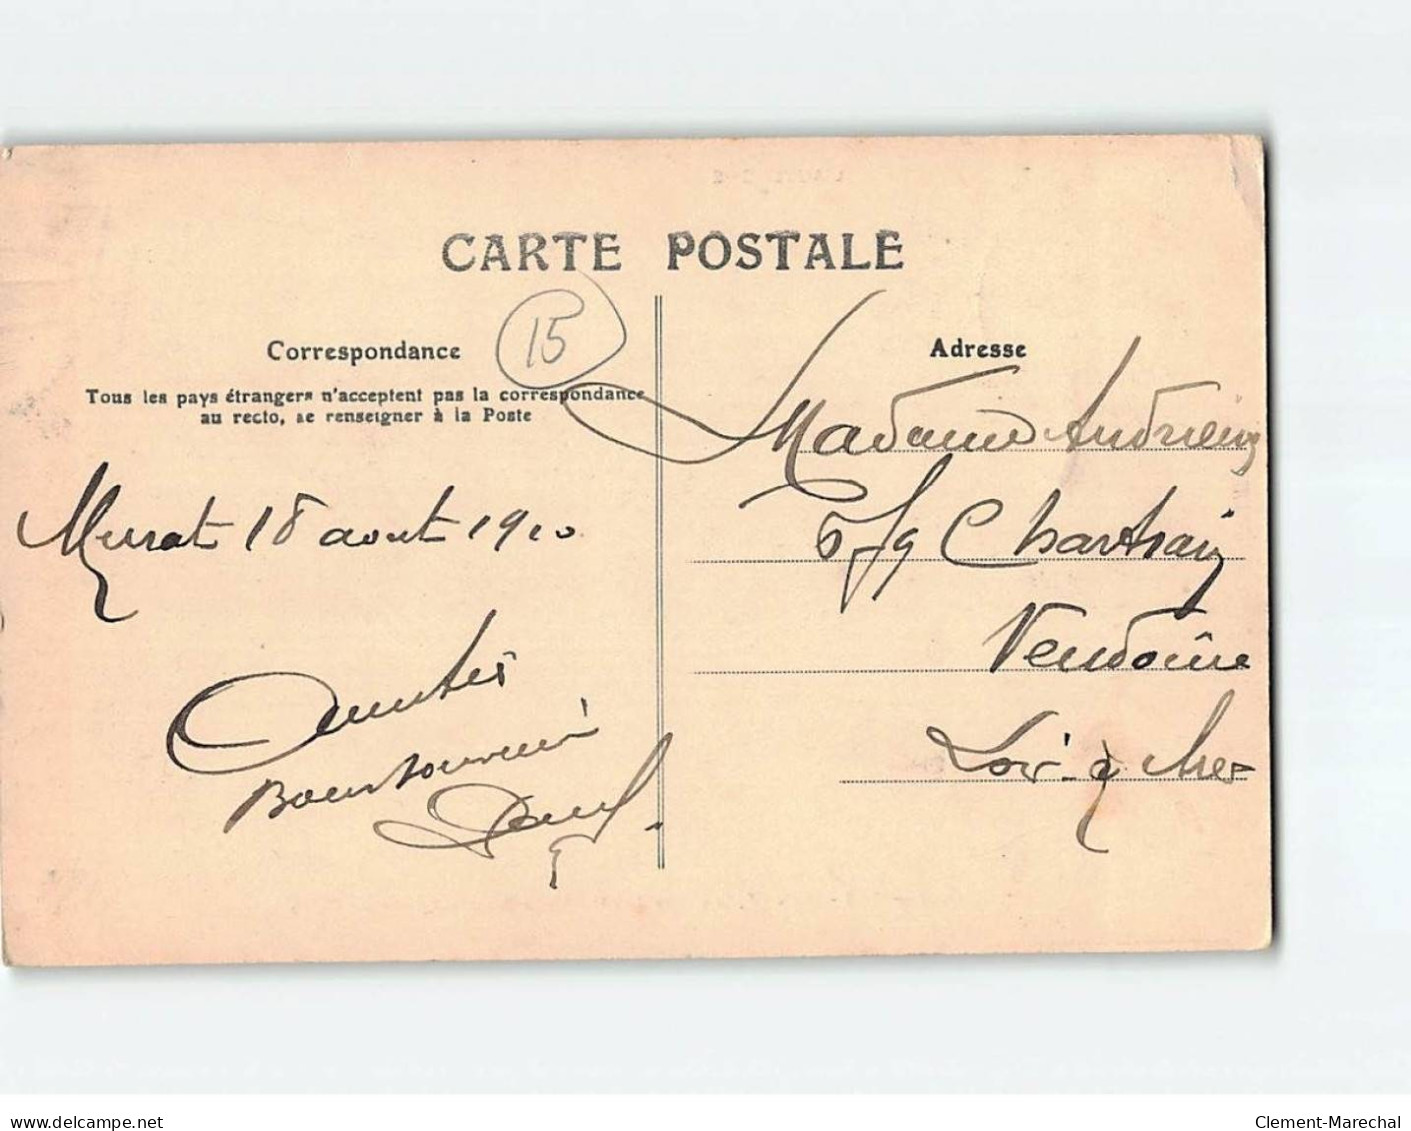 CARTE POSTALE
15
Correspondance
Tous les pays étrangers n'acceptent pas la correspondance
au recto, se renseigner à la Poste
Murat 18 aout 1910
Amitiés
Bon souvenir
Paul
Adresse
Madame Andrieux
fg Chartrain
Vendôme
Loir-&-Cher
www.delcampe.net
Clement-Marechal